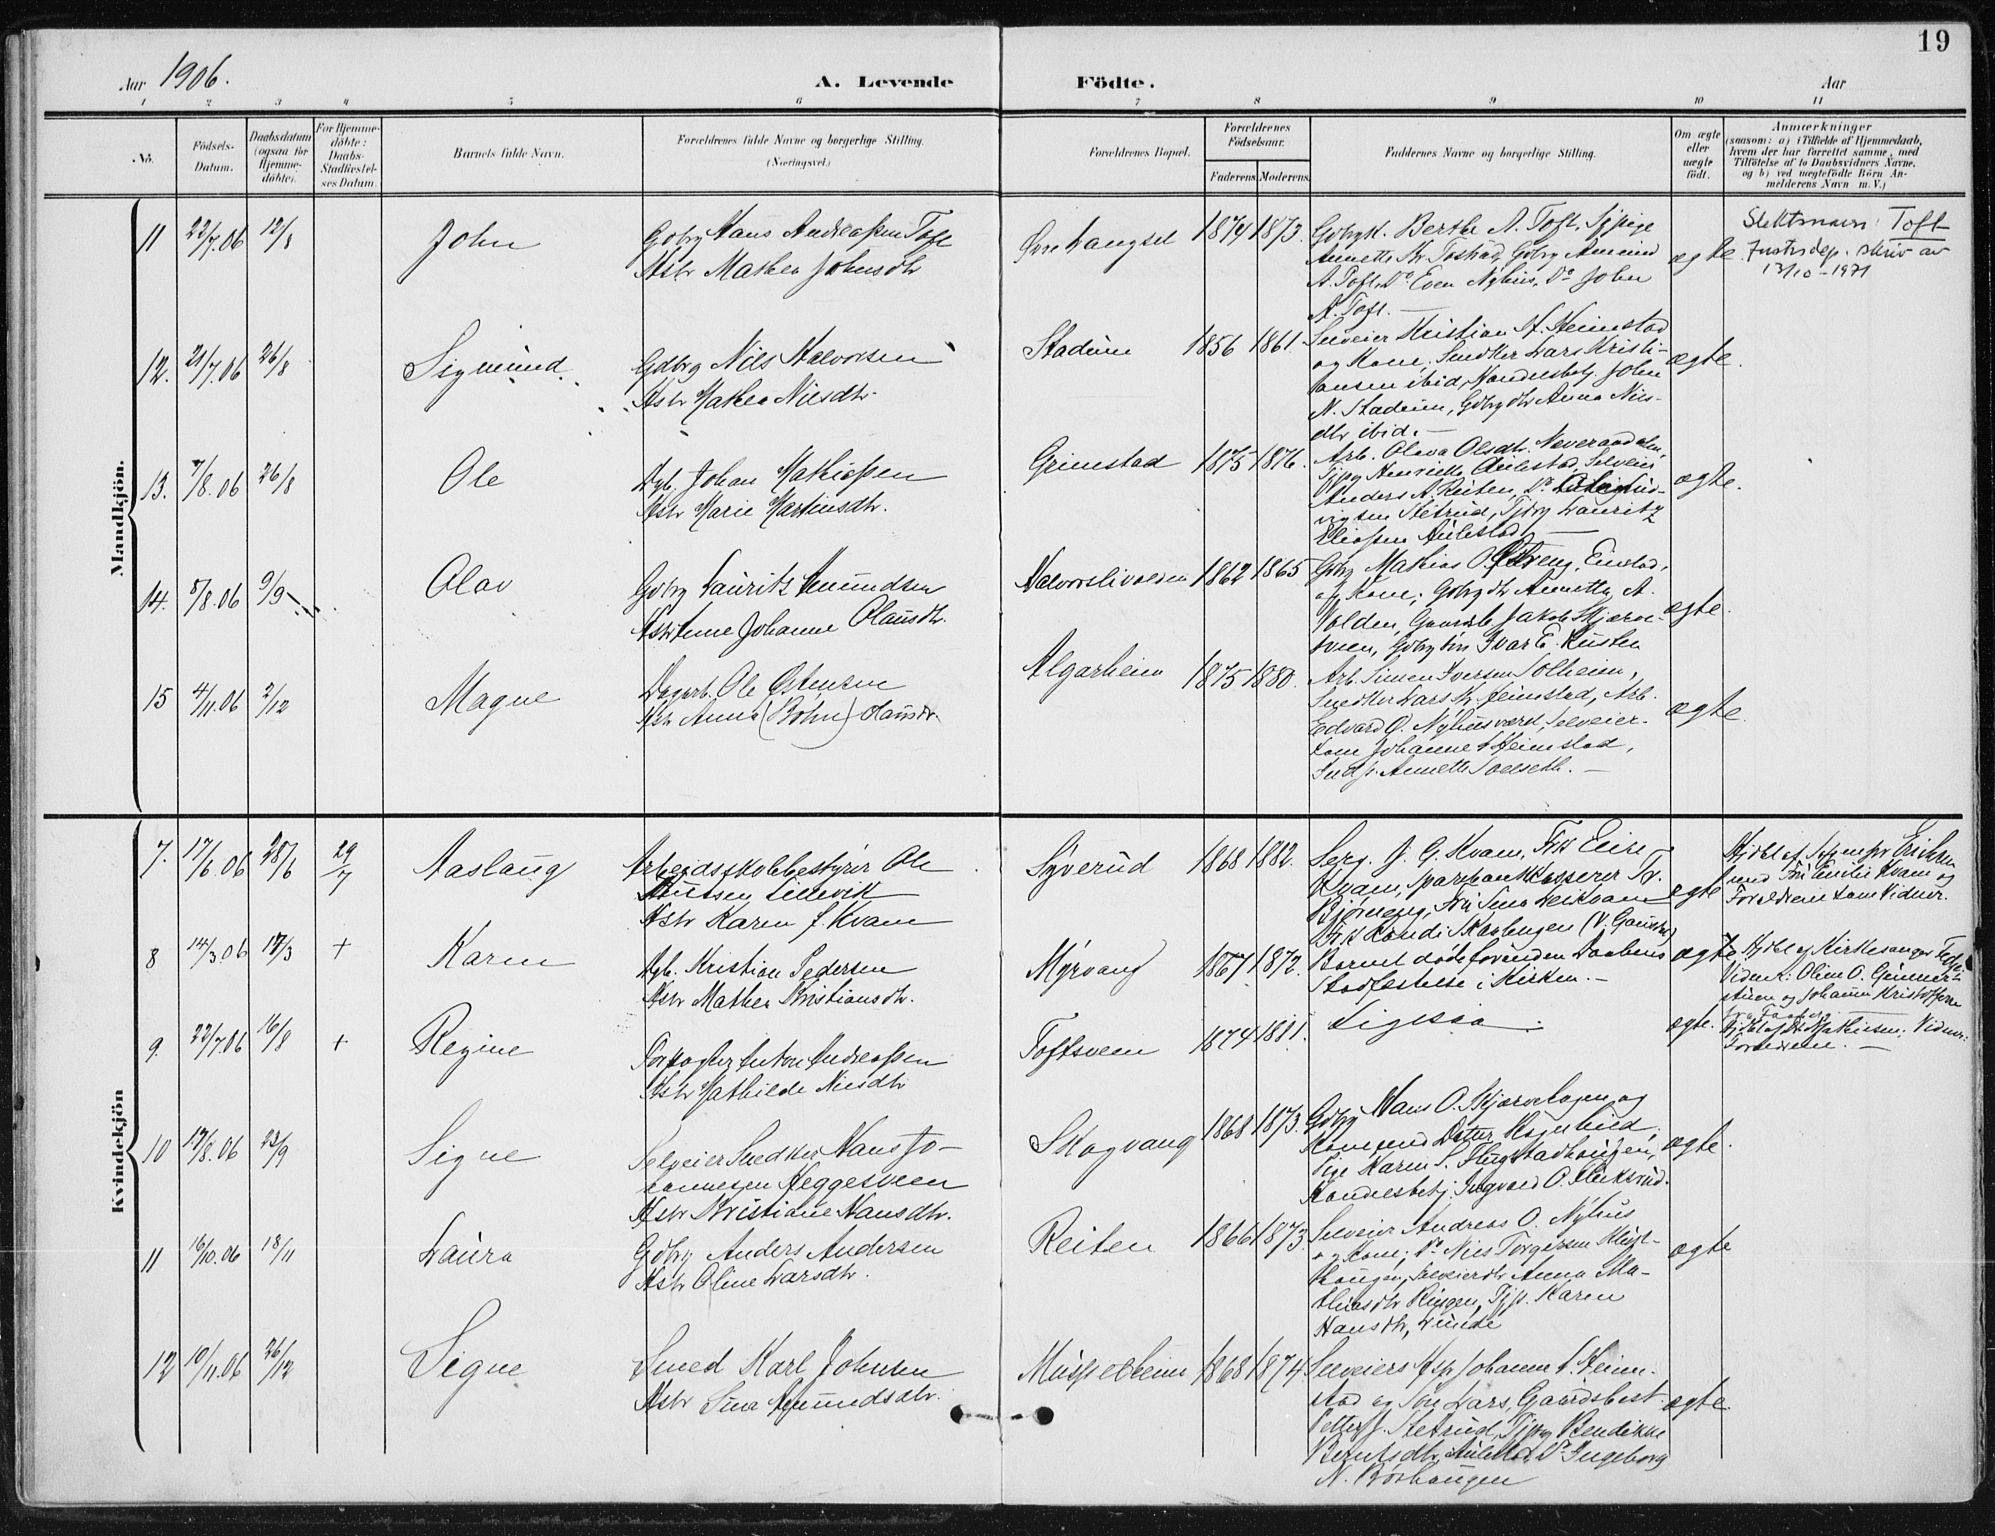 19
Aar 1906.
A. Levende Födte.
Aar
1 2 3 4 5 6 7 8 9 10 11
No.
Födsels-Datum.
Daabsdatum (ogsaa for Hjemme-döbte).
For Hjemme-döbte: Daabs-Stadfæstel-ses Datum.
Barnets fulde Navn.
Forældrenes fulde Navne og borgerlige Stilling. (Næringsvei.)
Forældrenes Bopæl.
Forældrenes Födselsaar.
Faderens. Moderens.
Faddernes Navne og borgerlige Stilling.
Om ægte eller uægte födt.
Anmærkninger
(saasom: a) i Tilfælde af Hjemmedaab, hvem der har forrettet samme, med Tilföielse af to Daabsvidners Navne, og b) ved uægtefödte Börn An-melderens Navn m. V.)
Mandkjön.
11 22/7.06 12/8 John
Gdbrg Hans Andreassen Toft
Hstr Mathea Johnsdtr
1874 1873.
Gdbrgk. Berthe A. Toft, Tjpige
Annette
A. Toft, Do Even Nyhus, Do John
A. Toft. —
ægte.
Slektsnavn: Toft
Justisdep. skriv av
13/10-1971
12. 21/7.06 26/8 Sigmund.
Gdbrg Nils Halvorsen
Hstr Mathea Nilsdtr.
Stadeim 1856 1861.
Selveier Kristian A. Heimstad
og Kone, Snedker Lars Kristi-
ansen ibid, Handelsbetj. John
N. Stadeim, Gdbrgdtr Anna Nils-
dtr ibid. —
ægte.
13. 7/8.06 26/8 Ole
Johan Mathissen
Hstr Marie Martinsdtr.
Grimstad 1875 1876.
Arb. Olava Olsdtr.
Aulestad, Selveier
Anders A. Reiten, Do
vigsen Sletrud, Tjbrg Lauritz
Eliassen Aulestad. —
ægte.
14. 5/8.06 9/9 Olav
Gdbrg Laurits Amundsen
Hstr Anne Johanne Olausdtr.
Halvorslivolden 1862 1865
Gdbrg Mathias O.
og Kone; Gdbrgdtr Annette A.
Volden, Jakob Skjærve-
sveen, Gdbrgsön Ivar E. Rusten
ægte.
15 4/11.06 2/12 Magne
Dagarb. Ole Østensen
Hstr Anna (Böhn) Olausdtr.
Algarheim 1875 1880.
Arb. Simen Iversen Solheim,
Snedker Lars K. Heimstad, Arb.
Edvard O. Nyhusværd, Selveier-
kone Johanne Heimstad,
Indp. Annette —
ægte.
Kvindekjön
7. 17/6.06 28/6 29/7 Aaslaug
Arbeidsskolebestyrer Ole
Knutsen Lillevik
Hstr Karen J. Kvam
Syverud 1868 1882.
Serg. J. G. Kvam, Frk Eline
Kvam, Sparbankkasserer Tr.
Bjørnerg, Fru Sina
Frk Randi
ægte
Hjdbt af Erichsen
med Fru Emilie Kvam og
Forældrene som Vidner.
8 14/3.06 17/3 + Karen
Kristian Pedersen
Hstr Mathea Kristiansdtr.
Myrvang 1867 1872.
Barnet döde forinden Daabens
Stadfæstelse i Kirken. —
ægte.
Hjdbt af Kirkesanger
Vidner: Oline O.
og Johanne Kristoffersen
9. 22/7.06 16/8 + Regine
Forpagter Anton Andreassen
Hstr Mathilde Nilsdtr
Toftsveen 1874 1881.
Ligesaa.
ægte.
Mathisen. Vidner:
Forældrene. —
10 17/8.06 23/9 Signe
Selveier Snedker Hans Jo-
hannesen Heggesveen
Hstr Kristiane Hansdtr.
Skogvang 1868 1873.
Gdbrg Hans O. Skjærvehagen og
Kone
Pige Karen S. Flugstadhaugen,
Handelsbetj. Ingvald O.
ægte.
11 16/10.06 18/11 Laura
Gdbrg Anders Andersen
Hstr Oline Larsdtr.
Reiten 1866 1873.
Selveier Andreas O. Nyhus
og Kone; Do Nils Torgersen
haugen, Selveierdtr Anna Ma-
Tjp. Karen
Hansdtr, Lunde
ægte
12 10/11.06 26/12 Signe
Smed Karl Johnsen
Hstr Sina Amundsdtr.
1868 1874
Selveiers Johanne Heim-
stad og Sön Lars, Gaardsbest.
Petter J. Sletrud, Tjbrg Bendikke
Berntsdtr Aulestad, Do Ingeborg
N. Börkhaugen
ægte.